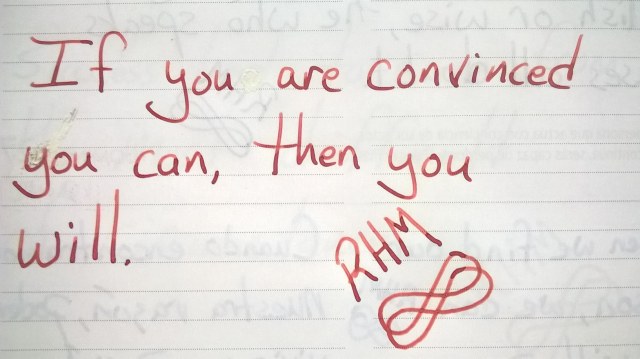 If you are convinced
you can, then you
will.
RHM